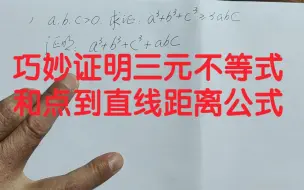 1, a.b.c>0. 求证: a³+b³+c³≥3abc
证明: a³+b³+c³+abc
巧妙证明三元不等式
和点到直线距离公式